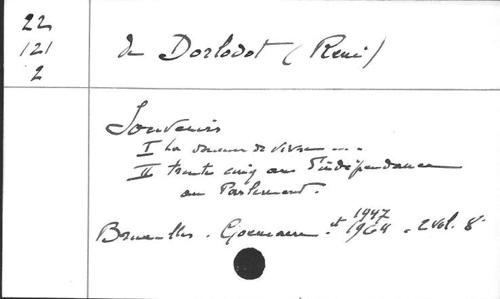 22
121
2
de Dorlodot (René)
Souvenirs
I La douceur de vivre...
II trente cinq ans d'indépendance
au Parlement.
Bruxelles. Goemaere. 1947 et 1964. 2 vol. 8°